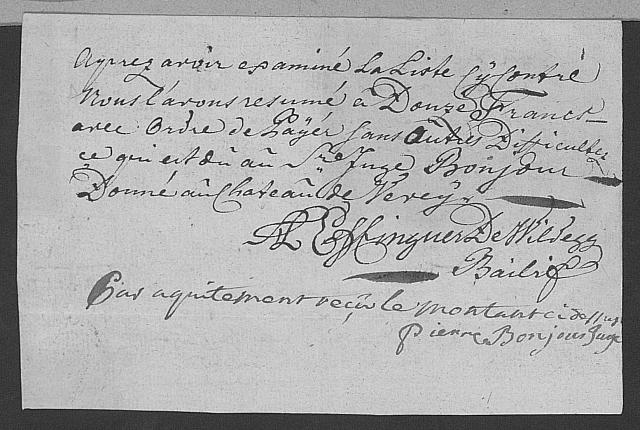 Ayprez avoir examiné La Liste Cy Contre
Nous l'avons resumé a Douze Francs
avec Ordre de Payér Sans Autres Difficultez
ce qui est dû au Sr. Juge Bonjour
Donné au Chateau de Vevey
Effinguer De Wildegg
Bailif
Par aquitement reçu le montant ci dessus
pierre Bonjour Juge